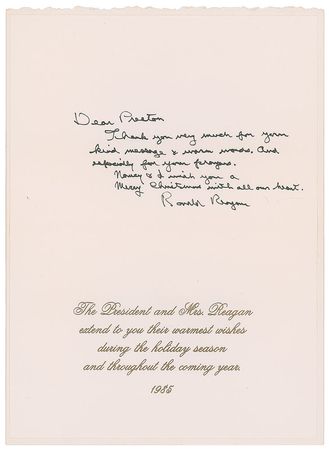 Dear Preston
Thank you very much for your
kind message & warm words. And
especially for your prayers.
Nancy & I wish you a
Merry Christmas with all our heart.
Ronald Reagan
The President and Mrs. Reagan
extend to you their warmest wishes
during the holiday season
and throughout the coming year.
1985